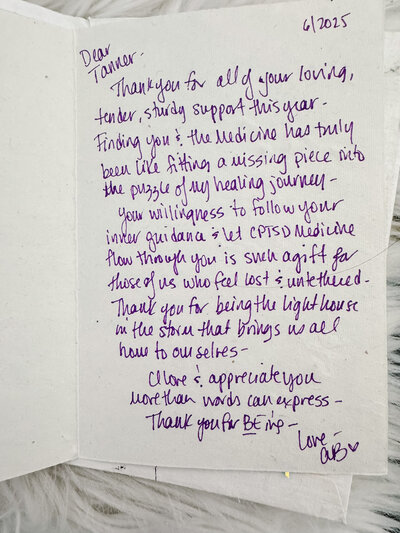 6/2025
Dear
Tanner -
Thank you for all of your loving,
tender, sturdy support this year -
Finding you & the Medicine has truly
been like fitting a missing piece into
the puzzle of my healing journey -
your willingness to follow your
inner guidance & let CPTSD Medicine
flow through you is such a gift for
those of us who feel lost & untethered -
Thank you for being the light house
in the storm that brings us all
home to ourselves -
I love & appreciate you
more than words can express -
Thank you for BEing -
Love -
AB ♡